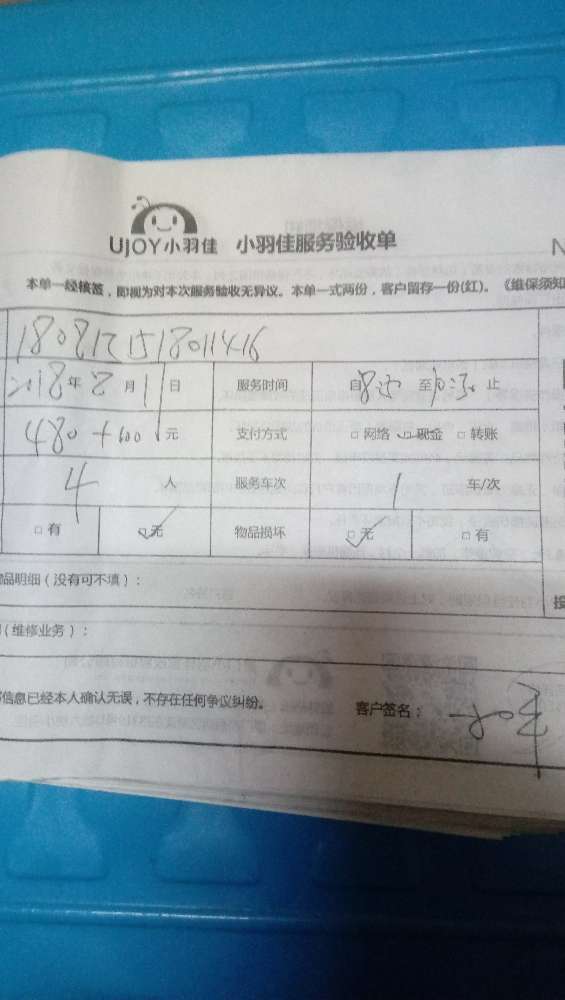 UJOY小羽佳 小羽佳服务验收单
N
本单一经核签，即视为对本次服务验收无异议。本单一式两份，客户留存一份(红)。《维保须知
2018年8月1日 服务时间 自 至 止
480+600元 支付方式 □网络 □现金 □转账
4人 服务车次 1车/次
□有 □无 物品损坏 □无 □有
品明细（没有可不填）：
（维修业务）：
信息已经本人确认无误，不存在任何争议纠纷。
客户签名：